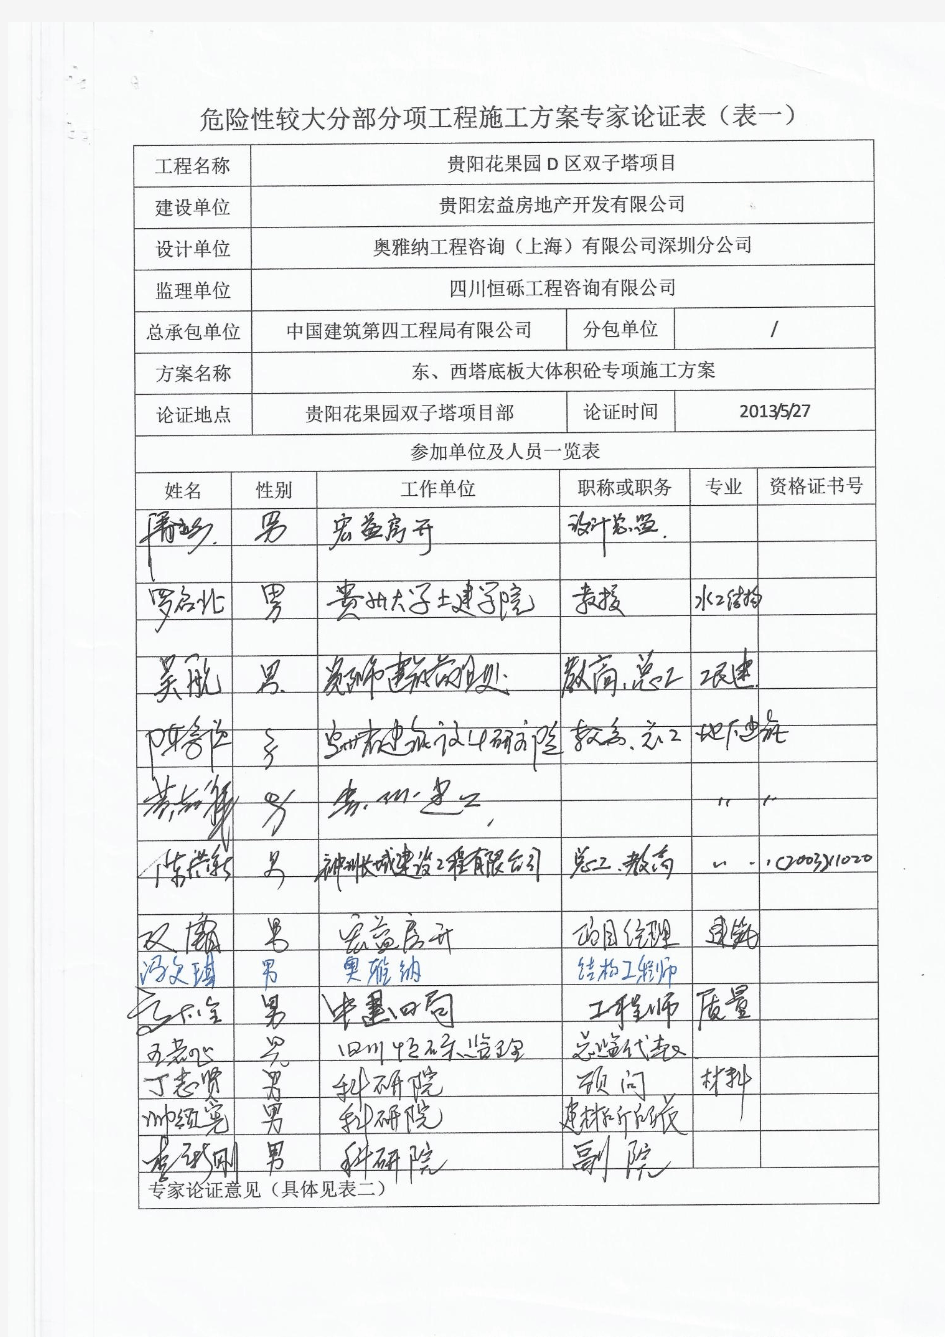 危险性较大分部分项工程施工方案专家论证表（表一）
工程名称 贵阳花果园 D 区双子塔项目
建设单位 贵阳宏益房地产开发有限公司
设计单位 奥雅纳工程咨询（上海）有限公司深圳分公司
监理单位 四川恒砾工程咨询有限公司
总承包单位 中国建筑第四工程局有限公司 分包单位 /
方案名称 东、西塔底板大体积砼专项施工方案
论证地点 贵阳花果园双子塔项目部 论证时间 2013/5/27
参加单位及人员一览表
姓名 性别 工作单位 职称或职务 专业 资格证书号
男 宏益房开 设计总监.
罗启北 男 贵州大学土建学院 教授 水工结构
吴航 男. 教高、总工 工民建
男 贵州省建筑设计研究院 教高、总工 地下建筑
男 〃 〃
陈洪新 男 神州长城建设工程有限公司 总工、教高
男 宏益房开 项目经理 建筑
冯文琪 男 奥雅纳 结构工程师
男 中建四局 工程师 质量
男 四川恒砾监理 总监代表
丁志贤 男 科研院 顾问 材料
帅领宽 男 科研院
刚 男 科研院 副院
专家论证意见（具体见表二）